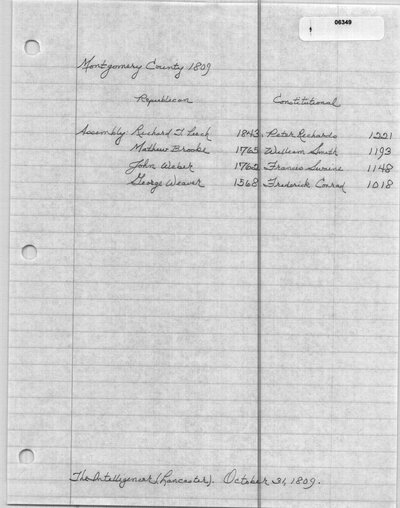 06349
Montgomery County 1809
Republican Constitutional
Assembly Richard T Leech 1843 Peter Richards 1221
Mathew Brooke 1765 William Smith 1193
John Weber 1762 Francis Swaine 1148
George Weaver 1568 Frederick Conrad 1018
The Intelligencer (Lancaster). October 31, 1809.